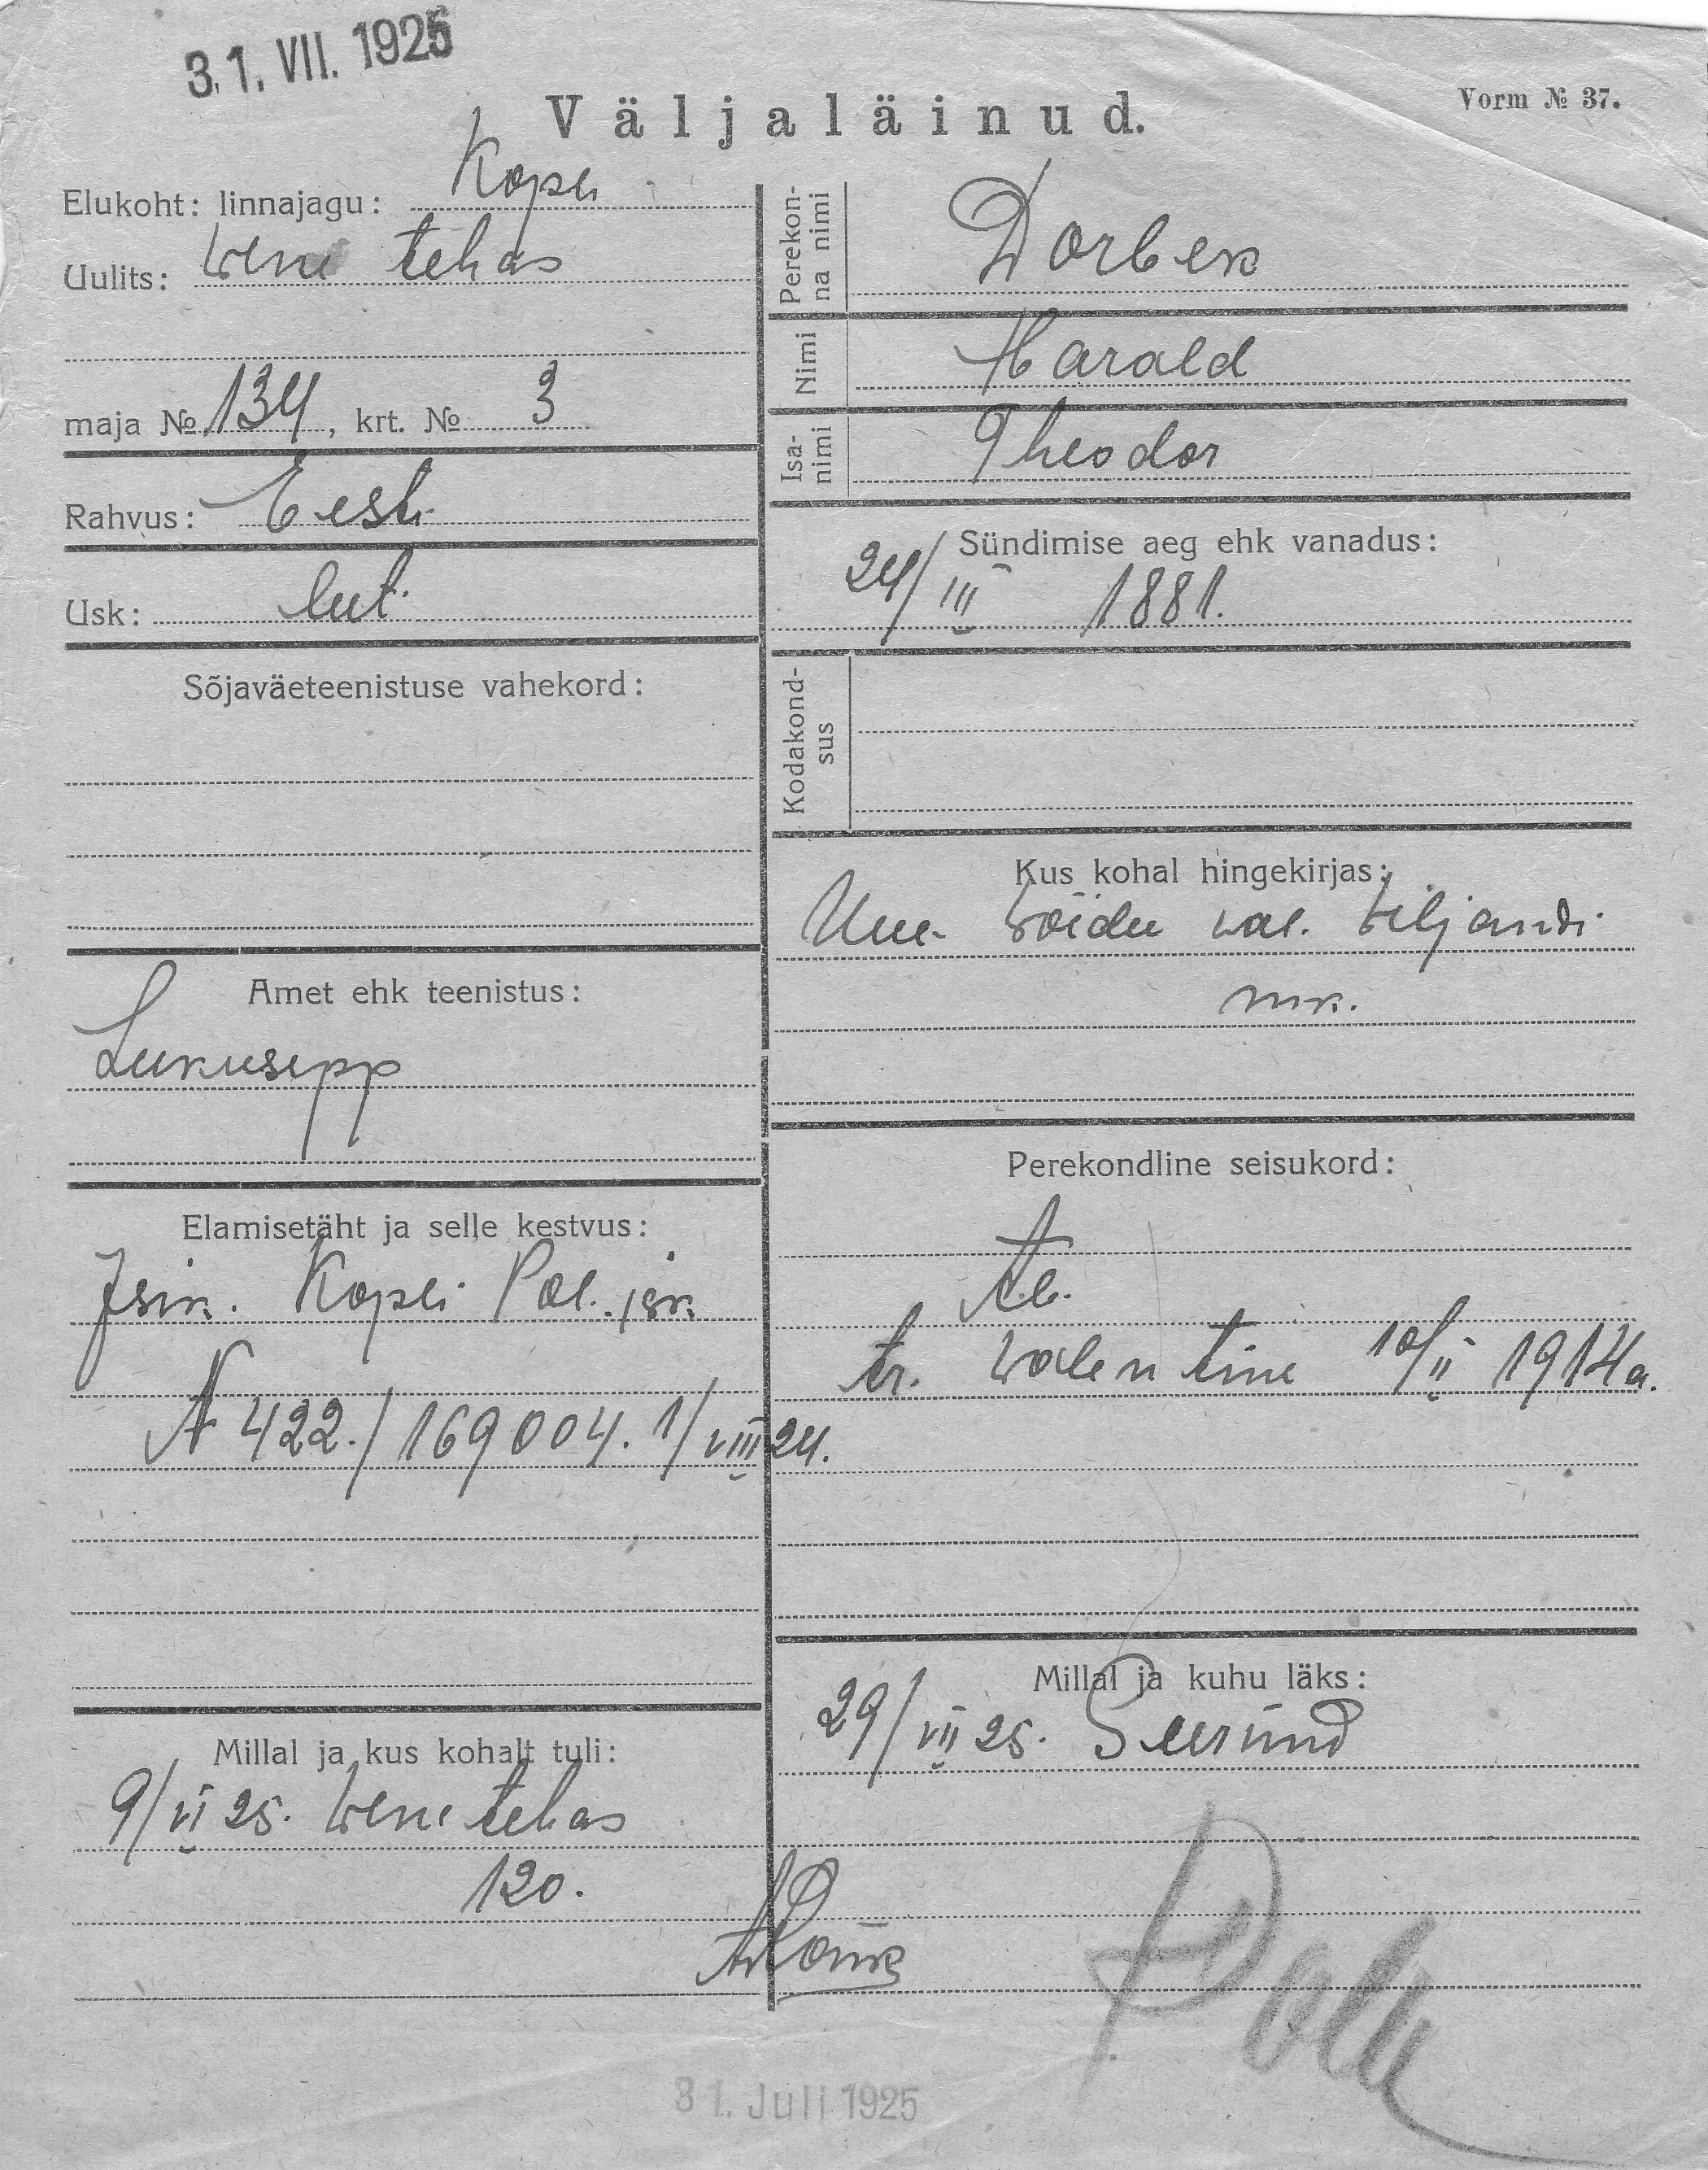 31. VII. 1925
Väljaläinud.
Vorm № 37.
Elukoht: linnajagu: Kopli
Uulits: Wene tehas
maja № 134, krt. № 3
Rahvus: Eesti
Usk: lut.
Sõjaväeteenistuse vahekord:
Amet ehk teenistus:
Lukusepp
Elamisetäht ja selle kestvus:
Isik. Kopli Pol. jsk.
N 422./169004. 1/VIII 24.
Millal ja kus kohalt tuli:
9/VI 25. Wene tehas
120.
Perekonna nimi
Dorbek
Nimi
Harald
Isanimi
Theodor
Sündimise aeg ehk vanadus:
24/III 1881.
Kodakondsus
Kus kohal hingekirjas:
Uue-Wõidu wal. Wiljandi
mk.
Perekondline seisukord:
Ab.
tr. Walentine 10/II 1914 a.
Millal ja kuhu läks:
29/VII 25. Surnud
31. Juli 1925